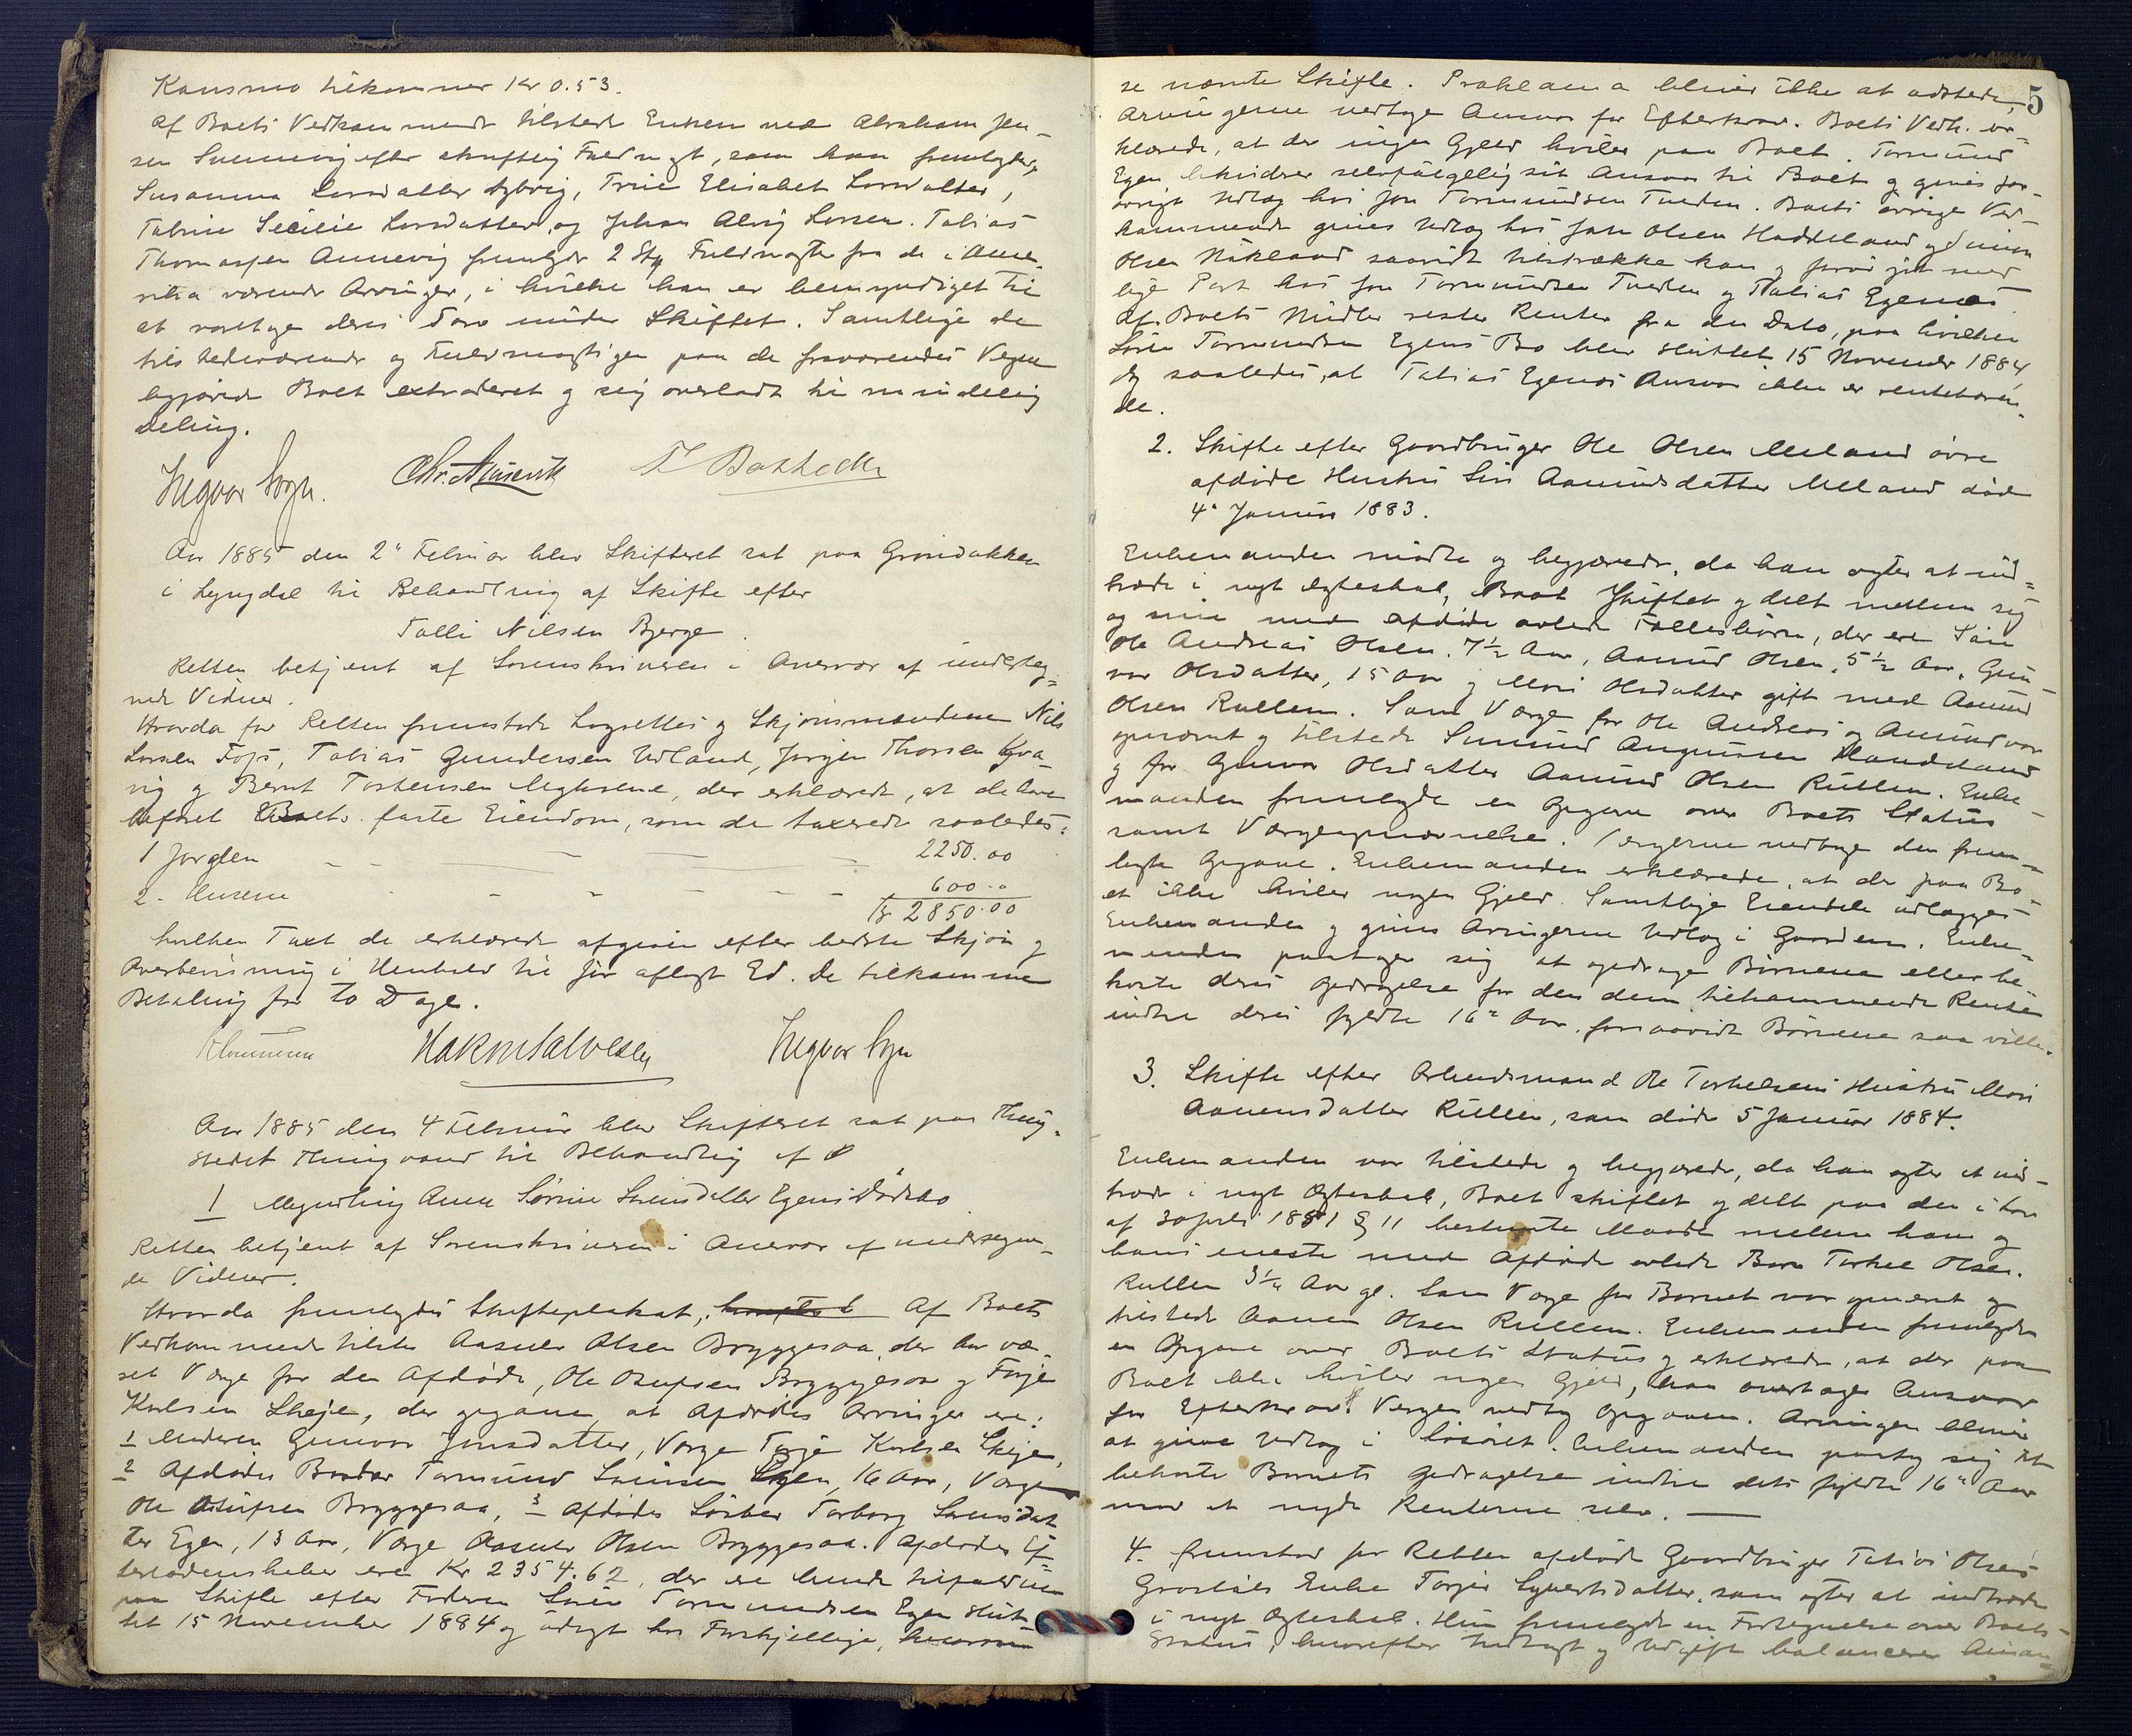 Kansmo tilkommer Kr 0.53.
Af Boets Vedkommende tilstede Enken med Abraham Jen-
sen Svennevig efter skriftlig Fuldmagt, som han fremlagde,
Susanna Larsdatter Nybrig, Trine Elisabet Larsdatter,
Tabine Secilie Larsdatter og Johan Alvig Larsen. Tobias
Thomassen Annevig fremlagde 2 Stk Fuldmagter fra de i Ame-
rika værende Arvinger, i hvilke han er bemyndiget til
at varetage deres Tarv under Skiftet. Samtlige de
tilstedeværende og Fuldmægtigen paa de fraværendes Vegne
begjærede Boet extraderet og sig overladt til mindelig
Deling.
Ingvor Sogn.
Aar 1885 den 2den Februar blev Skifteret sat paa Grøndokken
i Lyngdal til Behandling af Skifte efter
Tolli Nilsen Bjerge.
Retten betjent af Sorenskriveren i Overvær af underteg-
nede Vidner.
Hvorda for Retten fremstode Lagrettes og Skjønsmændene Nils
Larsen Foss, Tobias Gundersen Udland, Jørgen Thorsen Kva-
vig og Bernt Torkensen, der erklærede, at de have
befaret Boets faste Eiendom, som de taxerede saaledes:
1 Jorden - - - 2250.00
2. Husene - - - 600.00
Kr 2850.00
hvilken Taxt de erklærede afgiven efter bedste Skjøn og
Overbevisning i Henhold til før aflagt Ed. De tilkomme
Betaling for to Dage.
Hakon Salvesen Ingvor Sogn
Aar 1885 den 4 Februar blev Skifteret sat paa Thing-
stedet Thingvand til Behandling af
1 Myndling Anna Sørine Sveinsdatter Egens Dødsbo
Retten betjent af Sorenskriveren i Overvær af undertegne-
de Vidner.
Hvorda fremlagdes Skifteplakat, Af Boets
Vedkommende tilstede Aasulv Olsen Bryggesaa, der har væ-
ret Værge for den Afdøde, Ole Olufsen Bryggesaa og Terje
Karlsen Skeje, der opgave, at Afdødes Arvinger ere:
1 Moderen Gunvor Jonsdatter, Værge Terje Karlsen Skeje,
2 Afdødes Broder Tormund Sveinsen Egen, 16 Aar, Værge
Ole Olufsen Bryggesaa, 3 Afdødes Søster Torborg Sveinsdat-
ter Egen, 13 Aar, Værge Aasulv Olsen Bryggesaa. Afdødes Ef-
terladenskaber ere Kr 2354.62, der ere hende tilfaldne
paa Skifte efter Faderen Svein Tormundsen Egen slut-
tet 15 November 1884 og udlagt hos Forskjellige,
5
se nævnte Skifte. Proklama bliver ikke at udstede,
Arvingerne vedtage Ansvar for Efterkrav. Boets Vedk. er-
klærede, at der ingen Gjeld hviler paa Boet. Tormund
Egen likvidrer selvfølgelig sit Ansvar til Boet og gives for-
øvrigt Udlæg hos Jon Tormundsen Tveden. Boets øvrige Ved-
kommende gives Udlæg hos Jon Olsen Haddeland og
Olsen Nakland saavidt tilstrække kan og forøvrigt med
lige Part hos Jon Tormundsen Tveden og Tobias Egenes
Af Boets Midler rester Renter fra den Dato, paa hvilken
Svein Tormundsen Egens Bo blev sluttet 15 November 1884,
dog saaledes, at Tobias Egenes Ansvar ikke er rentebæren-
de.
2. Skifte efter Gaardbruger Ole Olsen Meland øvre
afdøde Hustru Siri Aamundsdatter Meland død
4de Januar 1883.
Enkemanden mødte og begjærede, da han agter at ind-
træde i nyt Ægteskab, Boet skiftet og delt mellem sig
og sine med afdøde avlede Fællesbørn, der ere
Ole Andreas Olsen, 7½ Aar, Aamund Olsen, 5½ Aar, Gun-
vor Olsdatter, 15 Aar og Mari Olsdatter gift med Aanund
Olsen Rullen. Som Værge for Ole Andreas og Amund var
opnævnt og tilstede
og for Gunvor Olsdatter Aanund Olsen Rullen. Enke-
manden fremlagde en Opgave over Boets Status
samt Værgeopnævnelse. Værgerne vedtage den frem-
lagte Opgave. Enkemanden erklærede, at der paa Bo-
et ikke hviler nogen Gjeld. Samtlige Eiendele udlægges
Enkemanden og gives Arvingerne Udlæg i Gaarden. Enke-
manden paatager sig at opdrage Børnene eller be-
koste deres Opdragelse for den dem tilkommende Rente
indtil deres fyldte 16de Aar, forsaavidt Børnene saa ville.
3. Skifte efter Arbeidsmand Ole Torkelsens Hustru Mari
Aanensdatter Rullen, som døde 5 Januar 1884.
Enkemanden var tilstede og begjærede, da han agter at ind-
træde i nyt Ægteskab, Boet skiftet og delt paa den i Lov
af 30 Juli 1851 § 11 bestemte Maade mellem ham og
hans eneste med Afdøde avlede Barn Torkel Olsen
Rullen 3½ Aar gl. Som Værge for Barnet var opnævnt og
tilstede Aanen Olsen Rullen. Enkemanden fremlagde
en Opgave over Boets Status og erklærede, at der paa
Boet ikke hviler nogen Gjeld, han overtager Ansvar
for Efterkrav. Værgen vedtog Opgaven. Arvingen bliver
at give Udlæg i Løsøret. Enkemanden paatog sig at
bekoste Barnets Opdragelse indtil dets fyldte 16de Aar
mod at nyde Renterne selv.
4. fremstod for Retten afdøde Gaardbruger Tobias Olsens
Enke Torjer Syvertsdatter, som agter at indtræde
i nyt Ægteskab. Hun fremlagde en Fortegnelse over Boets
Status, hvorefter Indtægt og Udgift balancerer.